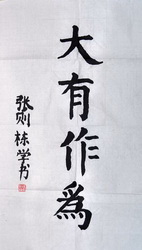 大有作為
张则栋学书